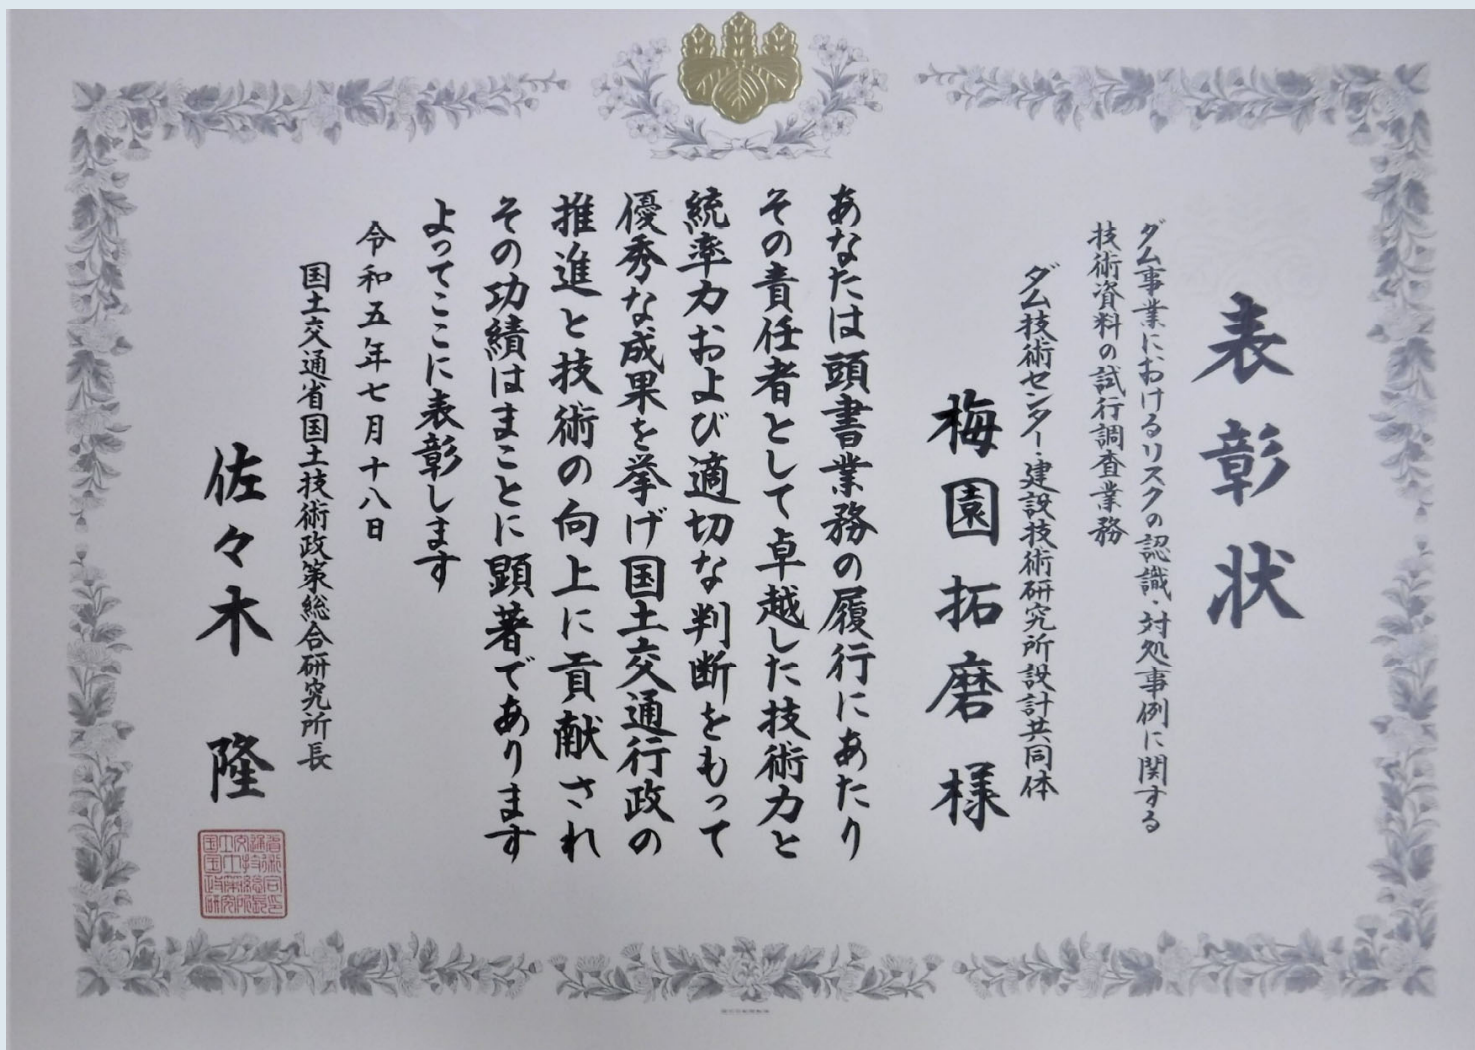 表彰状
ダム事業におけるリスクの認識・対処事例に関する
技術資料の試行調査業務
ダム技術センター・建設技術研究所設計共同体
梅園拓磨様
あなたは頭書業務の履行にあたり
その責任者として卓越した技術力と
統率力および適切な判断をもって
優秀な成果を挙げ国土交通行政の
推進と技術の向上に貢献され
その功績はまことに顕著であります
よってここに表彰します
令和五年七月十八日
国土交通省国土技術政策総合研究所長
佐々木隆